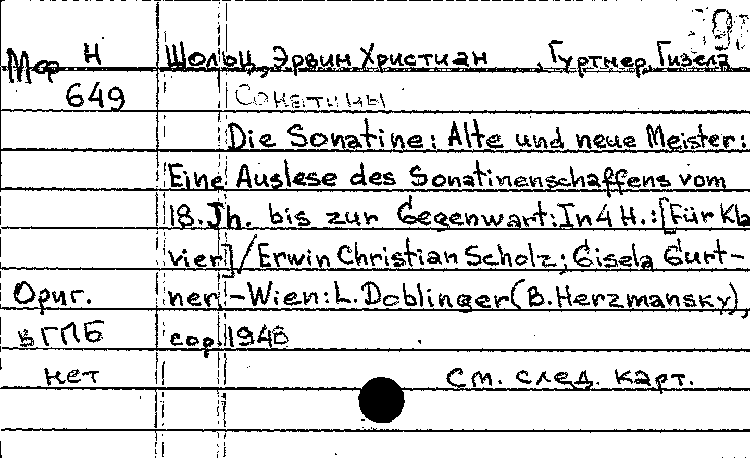 Мф Н Шольц, Эрвин Христиан, Гуртнер, Гизела
649 Сонатины
Die Sonatine: Alte und neue Meister:
Eine Auslese des Sonatinenschaffens vom
18. Jh. bis zur Gegenwart: In 4 H.: [Für Kla
vier] / Erwin Christian Scholz; Gisela Gurt-
Ориг. ner - Wien: L. Doblinger (B. Herzmansky),
в ГПБ cop. 1948
нет См. след. карт.